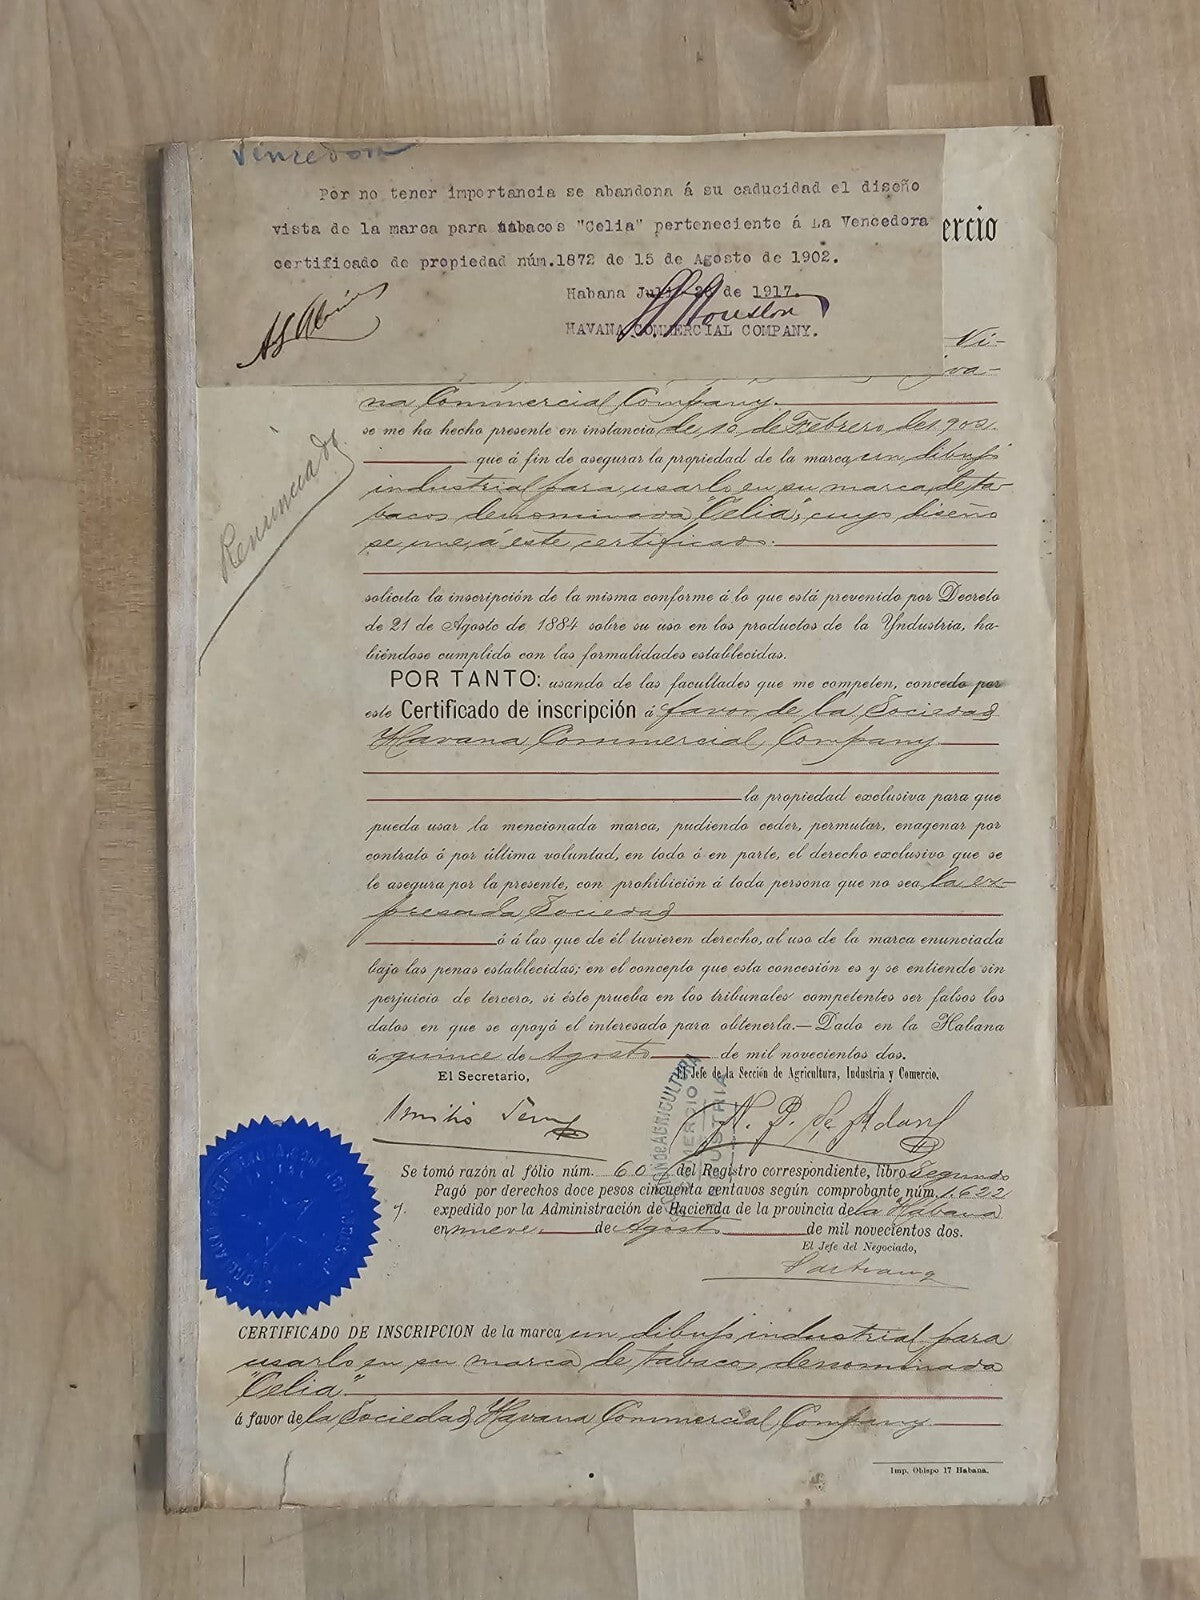 Vencedora
Por no tener importancia se abandona á su caducidad el diseño
vista de la marca para tabacos "Celia" perteneciente á La Vencedora
certificado de propiedad núm.1872 de 15 de Agosto de 1902.
Habana Julio 28 de 1917.
HAVANA COMMERCIAL COMPANY.
ercio
Renunciado
na Commercial Company.
se me ha hecho presente en instancia de 10 de Febrero de 1902.
que á fin de asegurar la propiedad de la marca un dibujo
industrial para usarlo en su marca de ta-
bacos denominada "Celia", cuyo diseño
se une á este certificado.
solicita la inscripción de la misma conforme á lo que está prevenido por Decreto
de 21 de Agosto de 1884 sobre su uso en los productos de la Yndustria, ha-
biéndose cumplido con las formalidades establecidas.
POR TANTO: usando de las facultades que me competen, concedo por
este Certificado de inscripción á favor de la Sociedad
Havana Commercial Company
la propiedad exclusiva para que
pueda usar la mencionada marca, pudiendo ceder, permutar, enagenar por
contrato ó por última voluntad, en todo ó en parte, el derecho exclusivo que se
le asegura por la presente, con prohibición á toda persona que no sea la ex-
presada Sociedad
ó á las que de él tuvieren derecho, al uso de la marca enunciada
bajo las penas establecidas; en el concepto que esta concesión es y se entiende sin
perjuicio de tercero, si éste prueba en los tribunales competentes ser falsos los
datos en que se apoyó el interesado para obtenerla.—Dado en la Habana
á quince de Agosto de mil novecientos dos.
El Secretario,
El Jefe de la Sección de Agricultura, Industria y Comercio,
Se tomó razón al fólio núm. 60 del Registro correspondiente, libro Segundo
Pagó por derechos doce pesos cincuenta centavos según comprobante núm. 1.622
expedido por la Administración de Hacienda de la provincia de la Habana
en nueve de Agosto de mil novecientos dos.
El Jefe del Negociado,
CERTIFICADO DE INSCRIPCION de la marca un dibujo industrial para
usarlo en su marca de tabacos denominada
"Celia".
á favor de la Sociedad Havana Commercial Company
Imp. Obispo 17 Habana.